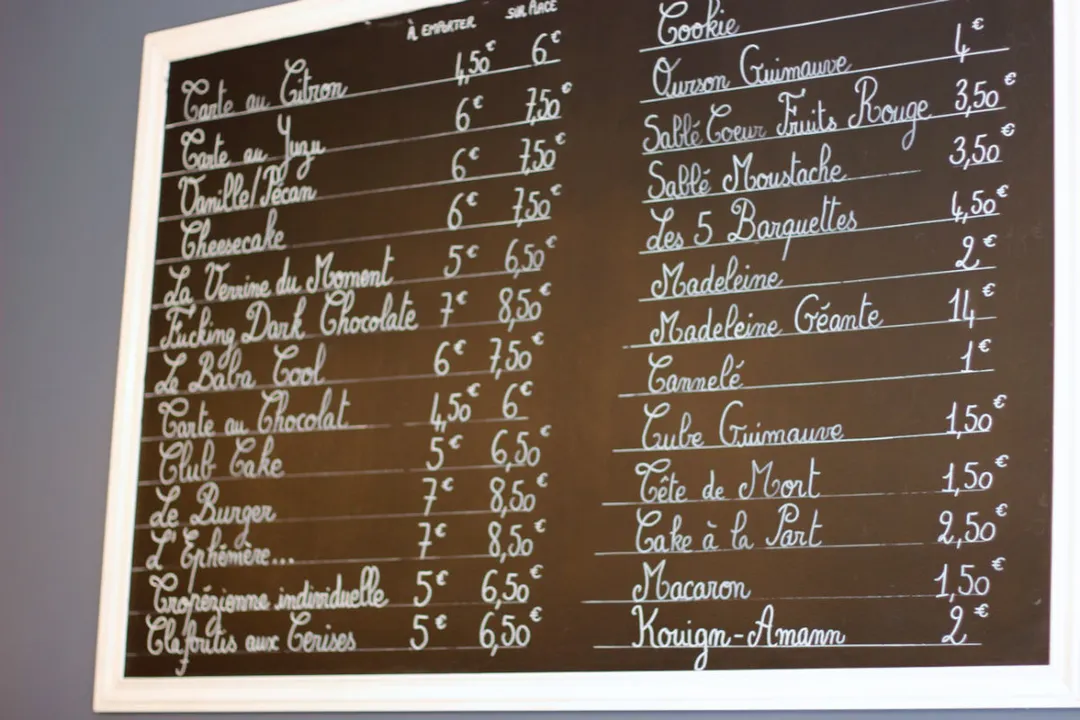 À EMPORTER SUR PLACE
Tarte au Citron 4,50€ 6€
Tarte au Yuzu 6€ 7,50€
Vanille/Pécan 6€ 7,50€
Cheesecake 6€ 7,50€
La Verrine du Moment 5€ 6,50€
Fucking Dark Chocolate 7€ 8,50€
Le Baba Cool 6€ 7,50€
Tarte au Chocolat 4,50€ 6€
Club Cake 5€ 6,50€
Le Burger 7€ 8,50€
L'Ephémère... 7€ 8,50€
Tropézienne individuelle 5€ 6,50€
Clafoutis aux Cerises 5€ 6,50€
Cookie
Ourson Guimauve 4€
Sablé Coeur Fruits Rouge 3,50€
Sablé Moustache 3,50€
Les 5 Barquettes 4,50€
Madeleine 2€
Madeleine Géante 14€
Cannelé 1€
Cube Guimauve 1,50€
Tête de Mort 1,50€
Cake à la Part 2,50€
Macaron 1,50€
Kouign-Amann 2€